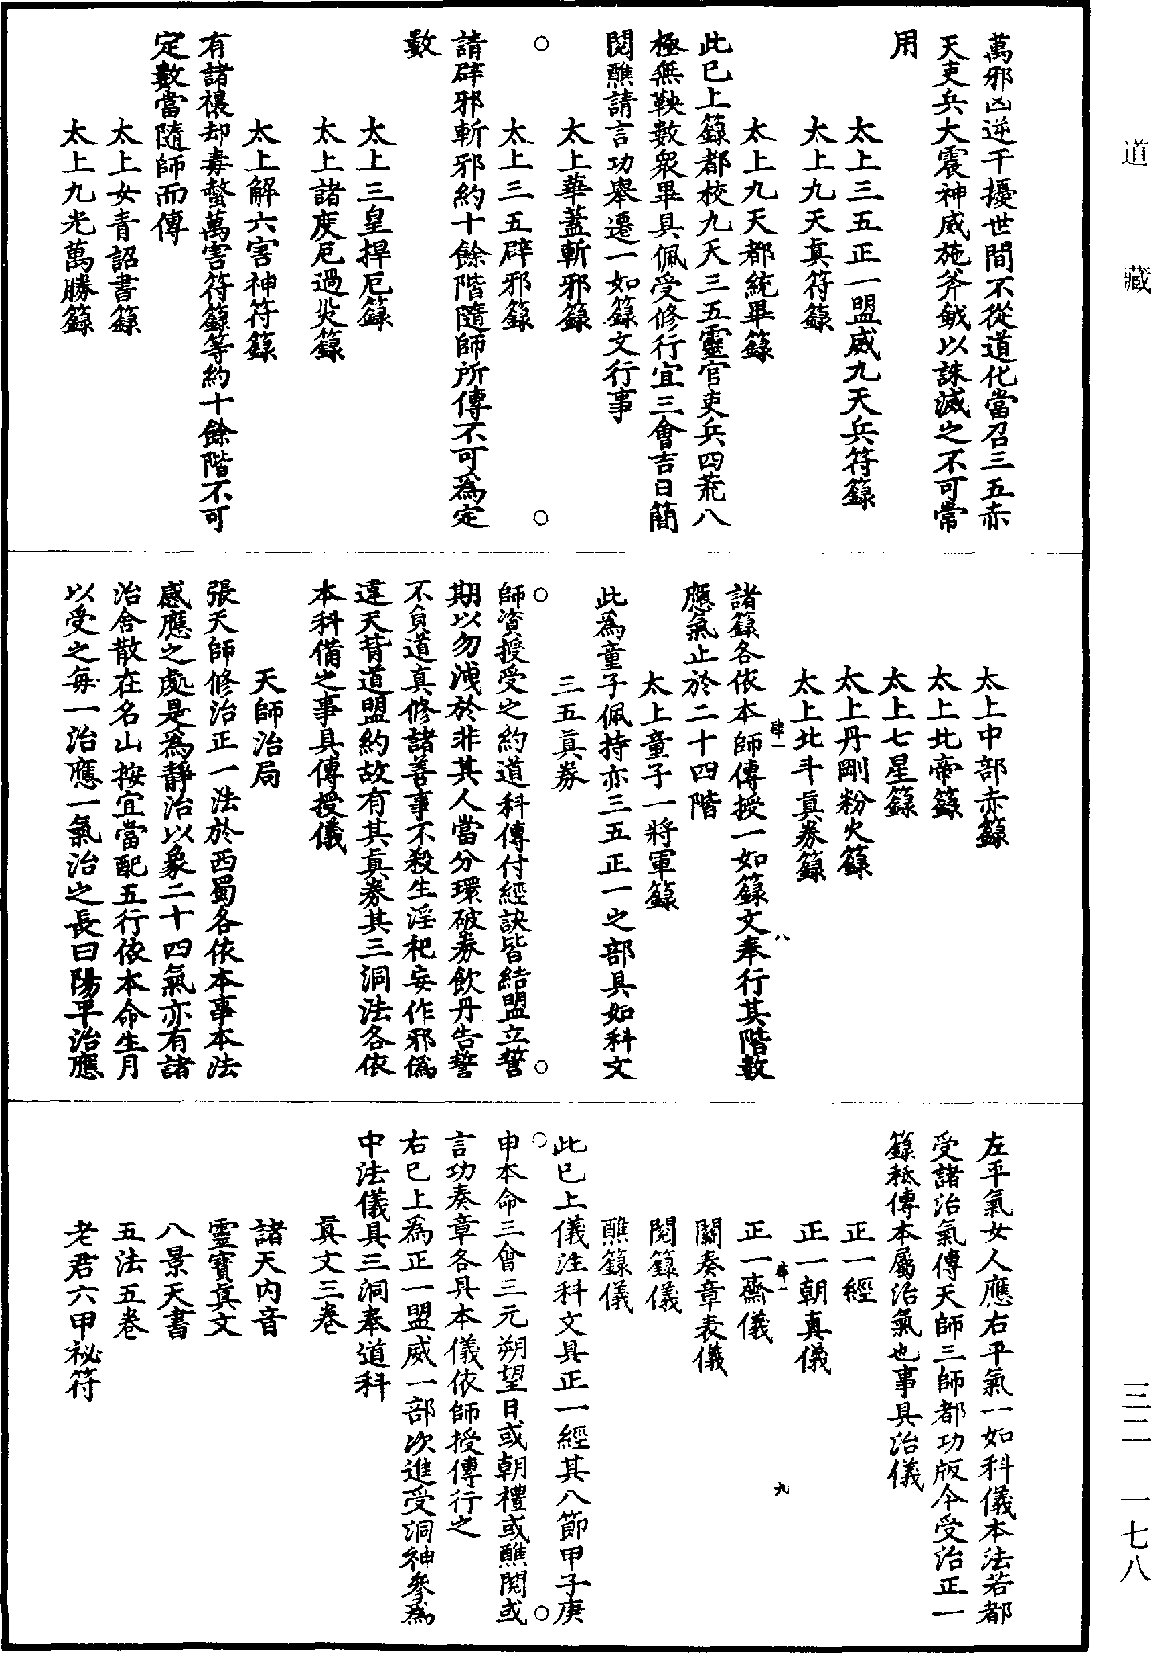 道藏
三二 一七八
萬邪凶逆干擾世間不從道化當召三五赤
天吏兵大震神威施斧鉞以誅滅之不可常
用
太上三五正一盟威九天兵符籙
太上九天真符籙
太上九天都統畢籙
此已上籙都校九天三五靈官吏兵四荒八
極無鞅數衆畢具佩受修行宜三會吉日簡
閱醮請言功舉遷一如籙文行事
太上華蓋斬邪籙
太上三五辟邪籙
請辟邪斬邪約十餘階隨師所傳不可為定
數
太上三皇捍厄籙
太上諸度厄過災籙
太上解六害神符籙
有諸禳却毒螫萬害符籙等約十餘階不可
定數當隨師而傳
太上女青詔書籙
太上九光萬勝籙
太上中部赤籙
太上北帝籙
太上七星籙
太上丹剛粉火籙
太上北斗真券籙
肆一 八
諸籙各依本師傳授一如籙文奉行其階數
應氣止於二十四階
太上童子一將軍籙
此為童子佩持亦三五正一之部具如科文
三五真券
師資授受之約道科傳付經訣皆結盟立誓
期以勿洩於非其人當分環破券飲丹告誓
不負道真修諸善事不殺生淫祀妄作邪偽
違天背道盟約故有其真券其三洞法各依
本科備之事具傳授儀
天師治局
張天師修治正一法於西蜀各依本事本法
感應之處是為靜治以象二十四氣亦有諸
治舍散在名山按宜當配五行依本命生月
以受之每一治應一氣治之長曰陽平治應
左平氣女人應右平氣一如科儀本法若都
受諸治氣傳天師三師都功版令受治正一
籙秪傳本屬治氣也事具治儀
正一經
正一朝真儀
肆一 九
正一齋儀
關奏章表儀
閱籙儀
醮籙儀
此已上儀注科文具正一經其八節甲子庚
申本命三會三元朔望日或朝禮或醮閱或
言功奏章各具本儀依師授傳行之
右已上為正一盟威一部次進受洞神參為
中法儀具三洞奉道科
真文三卷
諸天內音
靈寶真文
八景天書
五法五卷
老君六甲祕符